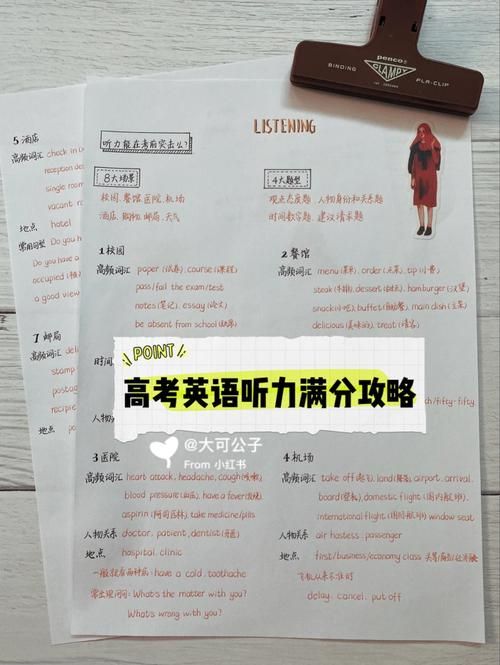 penco®
BINDING
CLAMPY
PLA-CLIP
LISTENING
听力能在考前突击么?
8大场景
校园、餐馆、医院、机场
酒店、购物、邮局、天气
4大题型
观点态度题、人物身份和关系题
时间数字题、建议请求题
1 校园
高频词汇 paper (试卷), course (课程)
pass/fail the exam/test
notes (笔记), essay (论文)
be absent from school (缺席)
时间
人物
2 餐馆
高频词汇 menu (菜单), order (点菜), tip (小费)
steak (牛排), dessert (甜点), hamburger (汉堡)
snack (小吃), buffet (自助餐), main dish (主菜)
delicious (美味的), treat (请客)
fifty-fifty
POINT
高考英语听力满分攻略
@大可公子
From 小红书
3 医院
高频词汇 heart attack, headache, cough (咳嗽)
blood pressure (血压), have a fever (发烧)
aspirin (阿司匹林), take medicine/pills
人物关系 doctor, patient, dentist (牙医)
地点 hospital, clinic
have a cold, toothache
What's the matter with you?
What's wrong with you?
4 机场
高频词汇 take off (起飞), land (降落), airport, arrival,
board (登机), domestic flight (国内航班),
international flight (国际航班), window seat
人物关系 air hostess, passenger
地点 first/business/economy class
飞机从来不准时
delay, cancel, put off
5 酒店
高频词汇 check in
reception
single room
vacant
地点 hotel
常用句型 Do you
Do you have a
occupied
a good view
7 邮局
高频词汇
stamp
地点